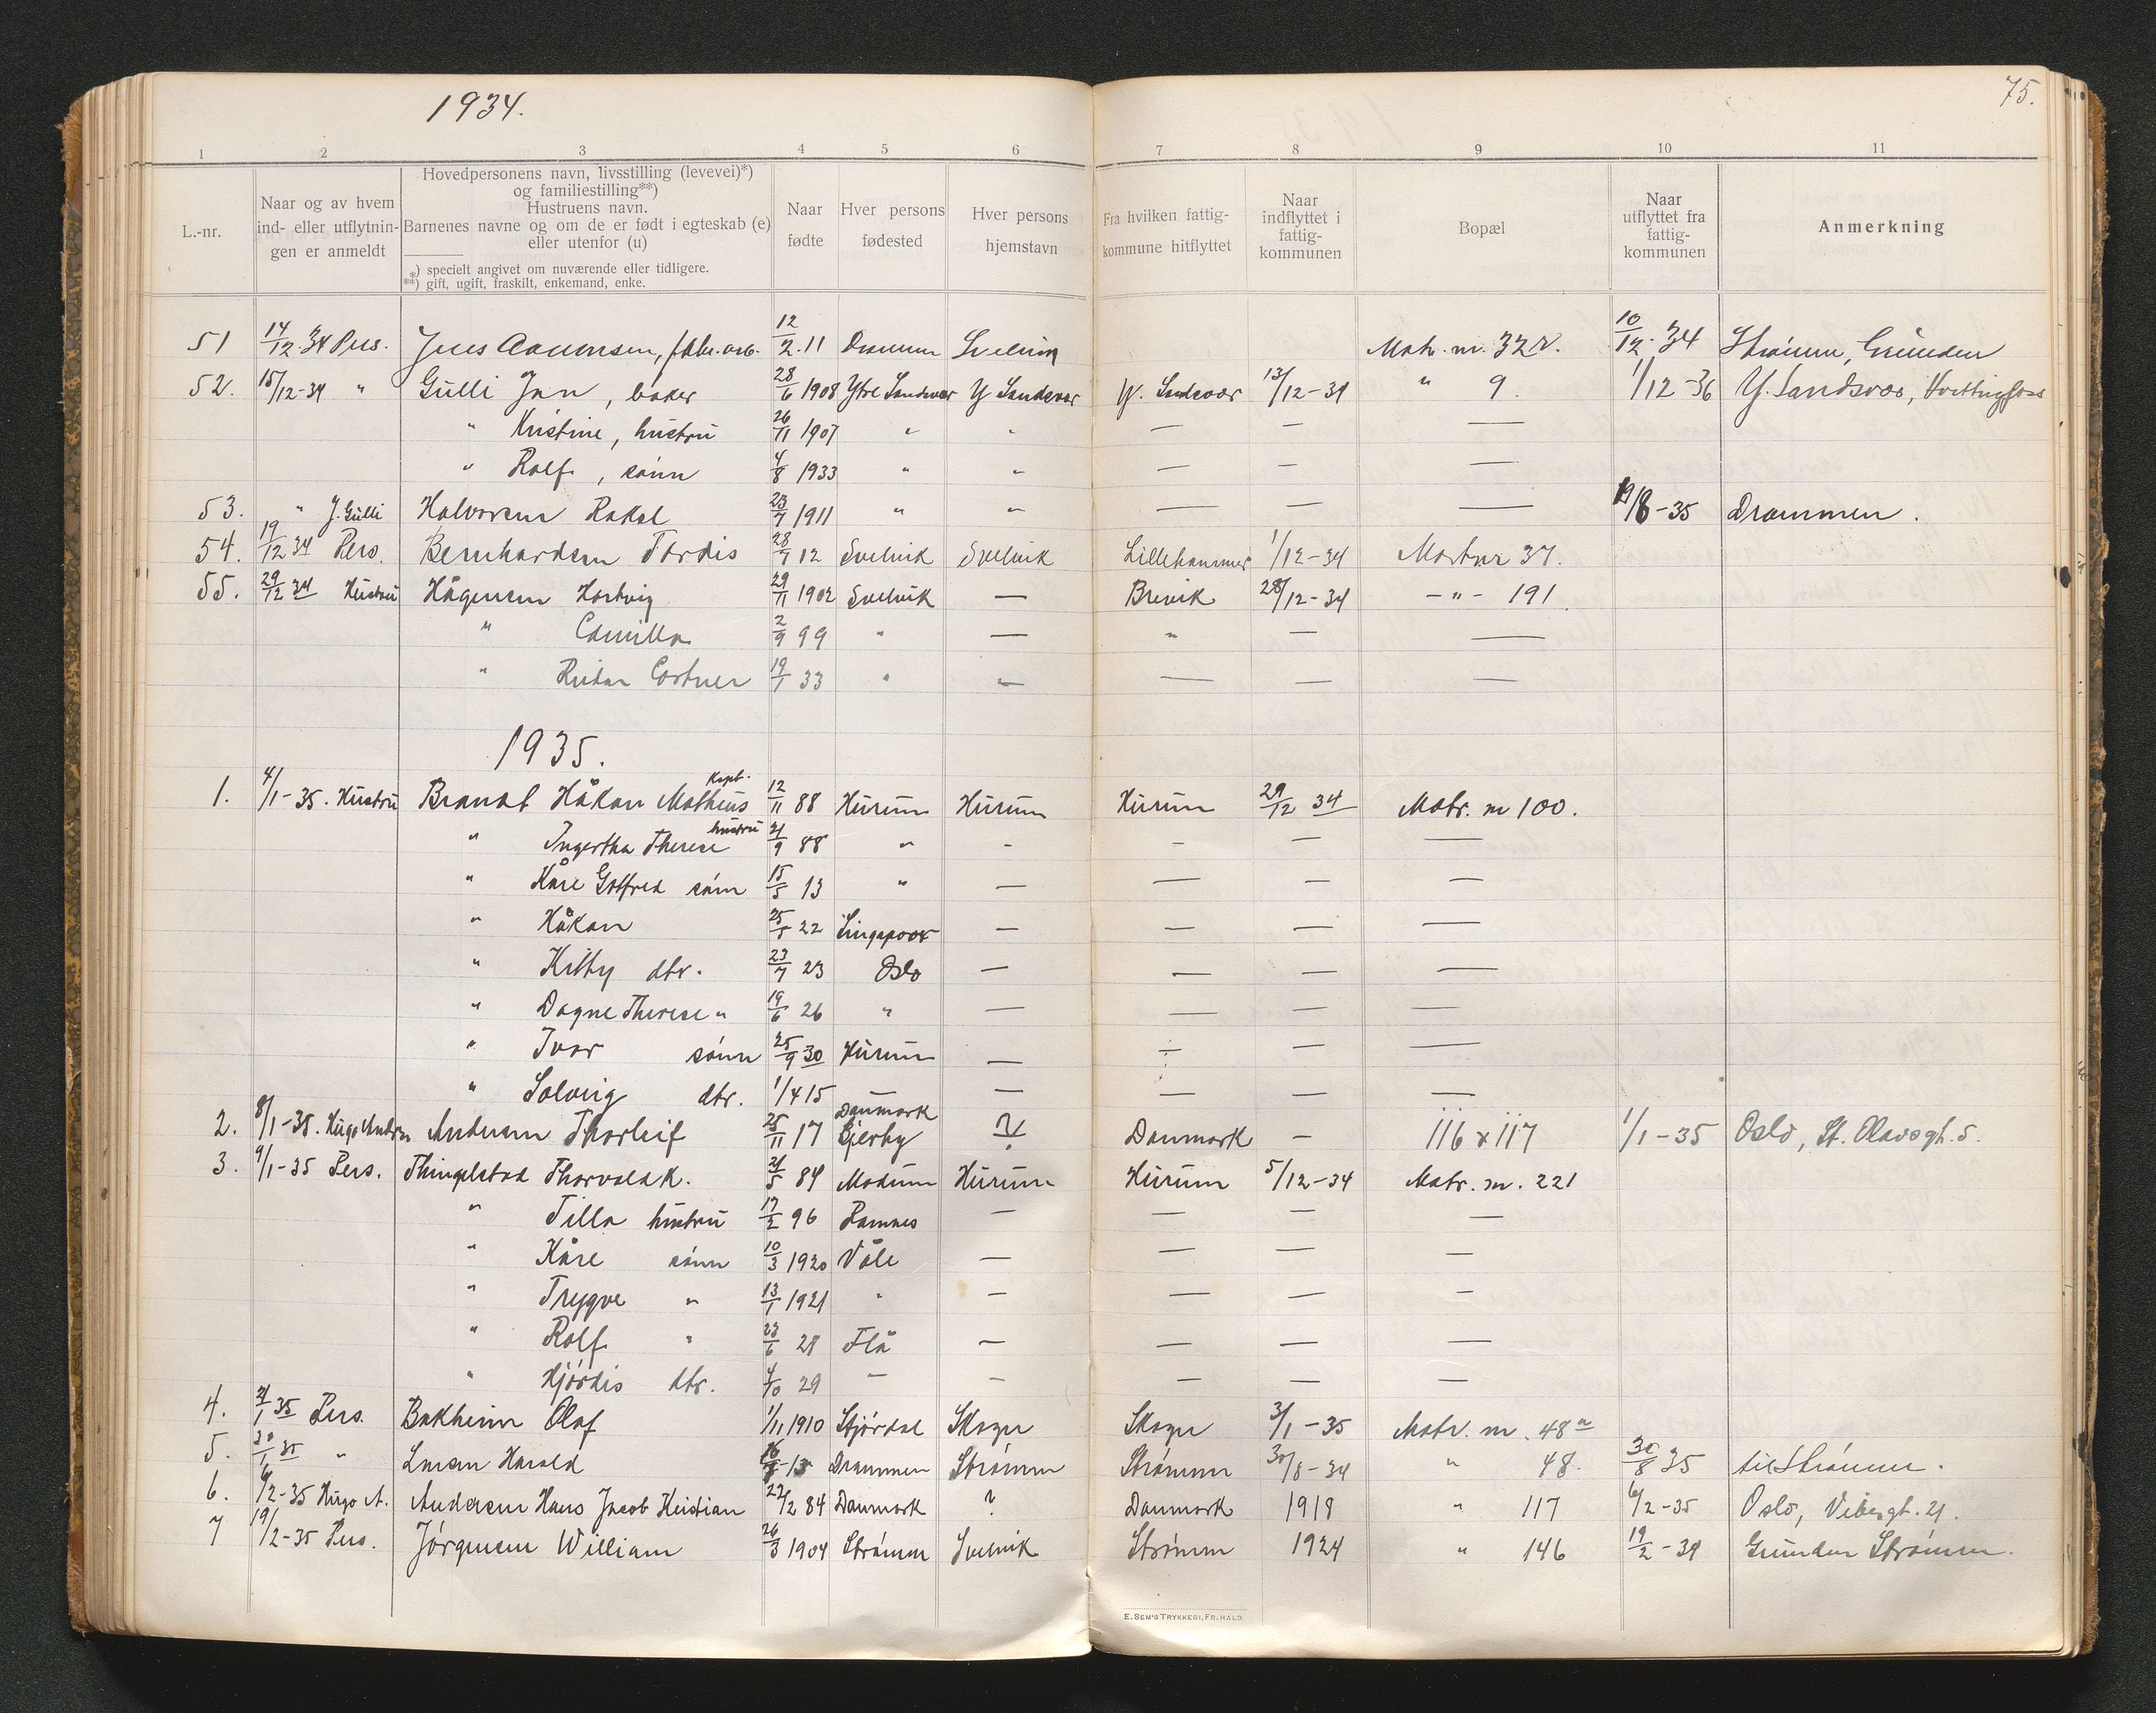 1934.
75.
1 2 3 4 5 6 7 8 9 10 11
L.-nr.
Naar og av hvem
ind- eller utflytnin-
gen er anmeldt
Hovedpersonens navn, livsstilling (levevei)*)
og familiestilling**)
Hustruens navn.
Barnenes navne og om de er født i egteskab (e)
eller utenfor (u)
*) specielt angivet om nuværende eller tidligere.
**) gift, ugift, fraskilt, enkemand, enke.
Naar
fødte
Hver persons
fødested
Hver persons
hjemstavn
Fra hvilken fattig-
kommune hitflyttet
Naar
indflyttet i
fattig-
kommunen
Bopæl
Naar
utflyttet fra
fattig-
kommunen
Anmerkning
51 14/12-34 Pers. Jens 12/2-11 Drammen Svelvik Matr. nr. 10/12-34 Strömm, Grunden
52. 15/12-34 " Gulli Jan, baker 28/6 1908 Ytre Sandsvær Y Sandsvær Y. Sandsvær 13/12-34 " 9. 1/12-36 Y. Sandsvær, Hvittingfoss
" Kristine, hustru 26/11 1907 " " — — —
" Rolf, sönn 4/8 1933 " " — — —
53. " J. Gulli Halvorsen Rakel 23/7 1911 " " — — — 19/8-35 Drammen.
54. 19/12 34 Pers. Bernhardsen Tordis 28/7 12 Svelvik Svelvik Lillehammer 1/12-34 Matr nr 37.
55. 29/12 34 Hustru Hågensen Hartvig 29/11 1902 Svelvik — Brevik 28/12-34 -"- 191.
" Camilla 2/9 99 " — " — —
" Reidar 19/1 33 " — — — —
1935.
1. 4/1-35. Hustru Brandt Håkon Matheus kapt. 12/11 88 Hurum Hurum Hurum 29/12 34 Matr. nr 100.
" Ingertha Therese hustru 21/9 88 " - - — —
" Kåre Gotfred sönn 15/5 13 " — — — —
" Håkon 25/5 22 Singapoor — — — —
" Kitty dtr. 23/7 23 Oslo — — — —
" Dagne Therese " 19/6 26 " — — — —
" Ivar sönn 25/9 30 Hurum — — — —
" Solveig dtr. 1/4 15 — — — — —
2. 8/1-35. Hugo Andersen Andersen Thorleif 25/11 17 Danmark Gjerby ? Danmark — 116 x 117 1/1-35 Oslo, St. Olavsgt. 5.
3. 9/1-35 Pers. Thingelstad Thorvald K. 21/5 84 Modum Hurum Hurum 5/12-34 Matr. nr. 221
" Tilla hustru 17/2 96 Ramnes — — — —
" Kåre sönn 10/3 1920 Våle — — — —
" Trygve " 13/1 1921 " — — — —
" Rolf " 23/6 28 Flå — — — —
" Hjördis dtr. 4/10 29 — — — — —
4. 21/1 35 Pers. Bakheim Olaf 1/11 1910 Stjördal Skoger Skoger 3/1-35 Matr. nr. 48a
5. 30/1 35 " Larsen Harald Drammen Strömm Strömm 30/8-34 " 48. 30/8 35 til Strömm.
6. 6/2-35 Hugo A. Andersen Hans Jacob Kristian 22/2 84 Danmark ? Danmark 1918 " 117 6/2-35 Oslo, Vibesgt. 21.
7 19/2-35 Pers. Jörgensen William 26/3 1904 Strömm Svelvik Strömm 1924 " 146 19/2-34 Grunden Strömm.
E. SEM'S TRYKKERI, FR. HALD